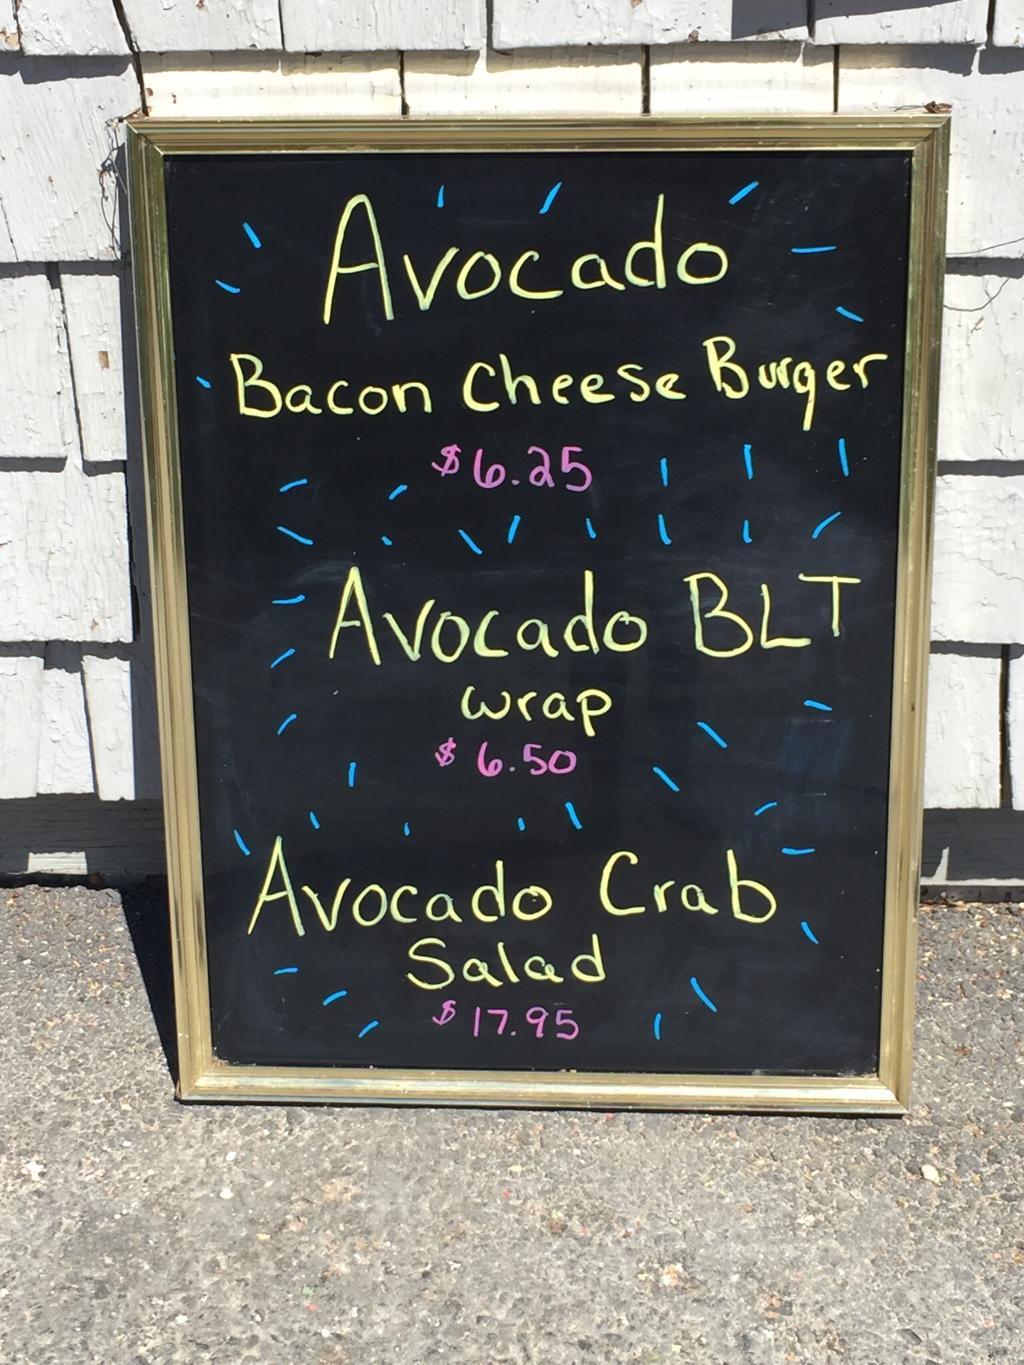 Avocado
Bacon Cheese Burger
$6.25
Avocado BLT
wrap
$6.50
Avocado Crab
Salad
$17.95